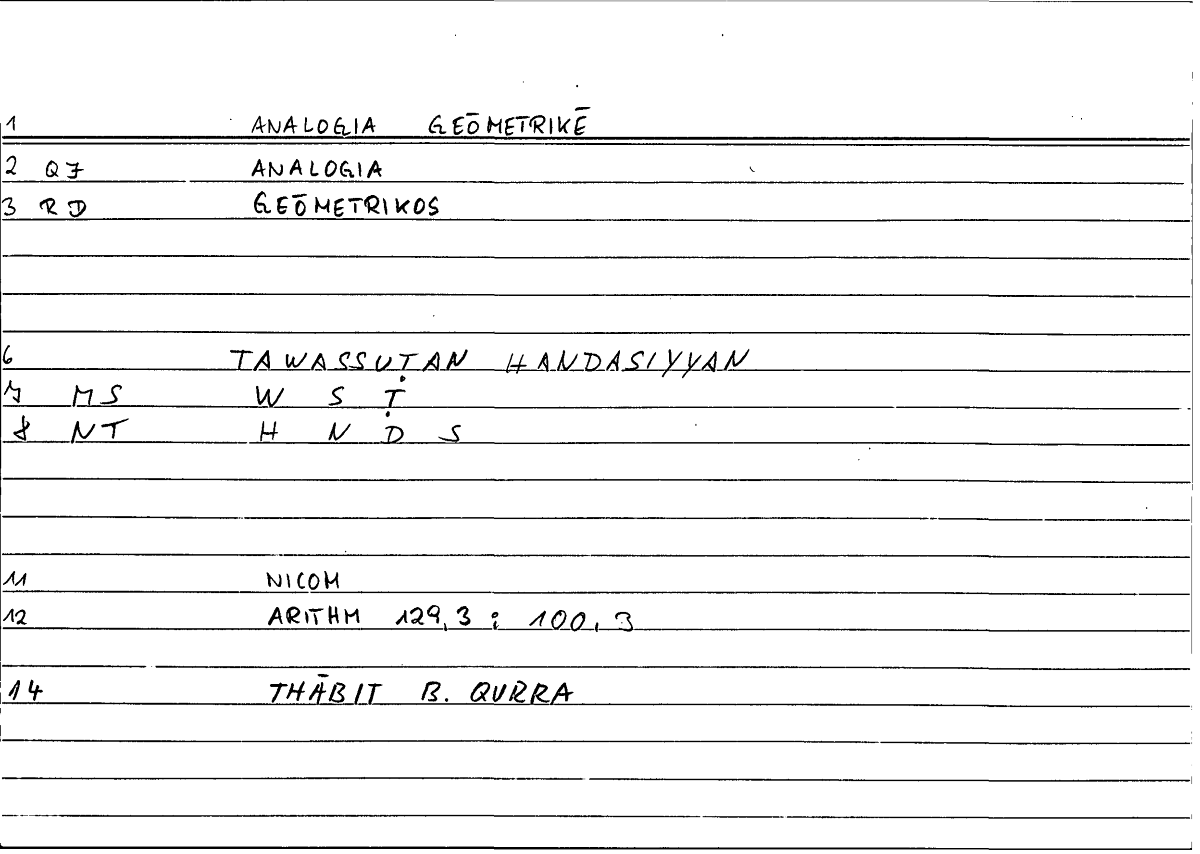 1 ANALOGIA GEŌMETRIKĒ
2 QJ ANALOGIA
3 RD GEŌMETRIKOS
6 TAWASSUṬAN HANDASIYYAN
7 MS W S Ṭ
8 NT H N D S
11 NICOM
12 ARITHM 129,3 ; 100,3
14 THĀBIT B. QURRA